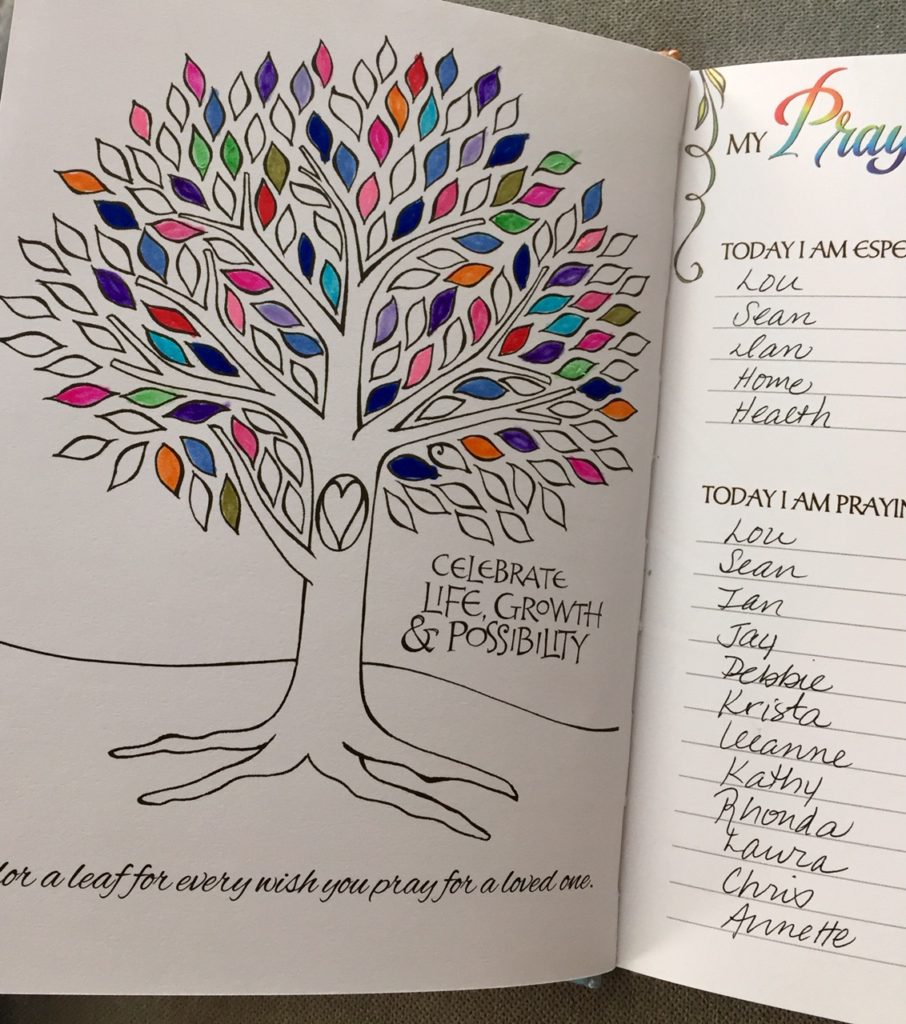 CELEBRATE
LIFE, GROWTH
& POSSIBILITY
lor a leaf for every wish you pray for a loved one.
MY Pray
TODAY I AM ESPE
Lou
Sean
Dan
Home
Health
TODAY I AM PRAYIN
Lou
Sean
Ian
Jay
Debbie
Krista
Leeanne
Kathy
Rhonda
Laura
Chris
Annette